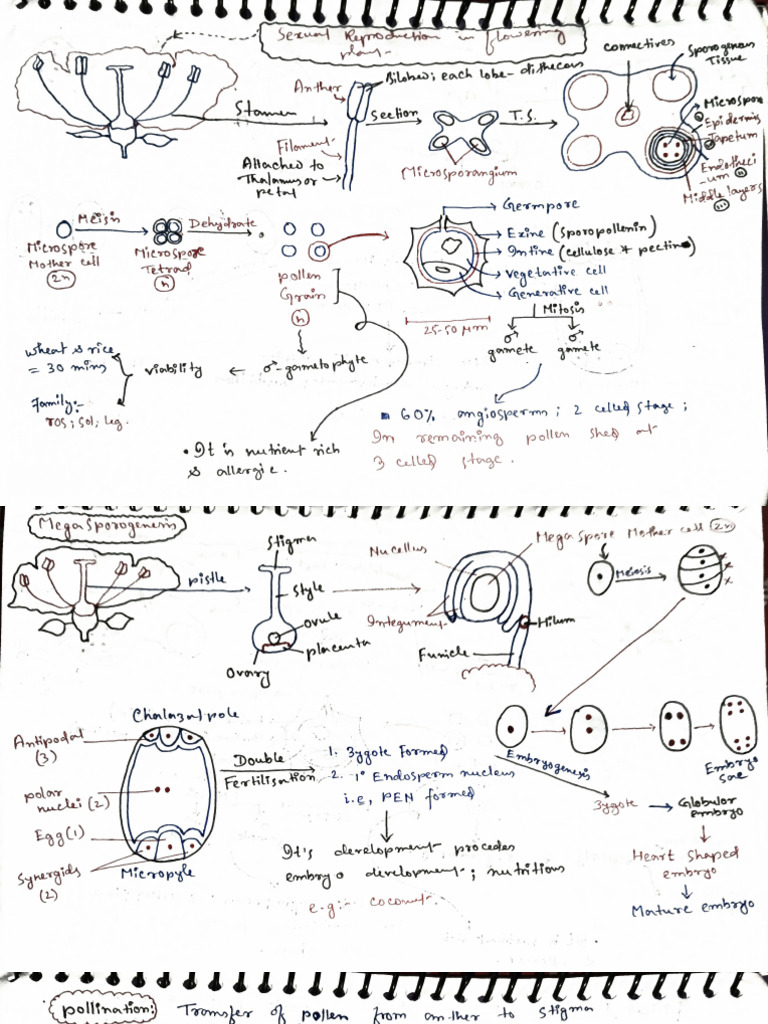 Sexual Reproduction in flowering
plant
Stamen
Anther
Bilobed; each lobe - dithecous
Filament
Attached to
Thalamus or
petal
Section
Microsporangium
T.S.
Connectives
Sporogenous
Tissue
Microspore
Epidermis
Tapetum
Endotheci
-um
Middle layers
Microspore
Mother cell
(2n)
Meisin
Microspore
Tetrad
(n)
Dehydrate
pollen
Grain
(n)
Germpore
Exine (sporopollenin)
Intine (cellulose + pectin)
Vegetative cell
Generative cell
25-50 μm
Mitosis
♂
gamete
♂
gamete
♂-gametophyte
viability
wheat & rice
= 30 mins
Family:-
ros; sol; leg.
• It is nutrient rich
& allergic.
60% angiosperm; 2 celled stage;
In remaining pollen shed at
3 celled stage.
Megasporogenesis
pistle
Stigma
style
ovule
placenta
Ovary
Nucellus
Integument
Hilum
Funicle
Mega Spore Mother cell (2n)
Meiosis
Embryogenesis
Embryo
sac
Zygote → Globular
embryo
Heart Shaped
embryo
Mature embryo
Chalazal pole
Antipodal
(3)
polar
nuclei (2)
Egg (1)
Synergids
(2)
Micropyle
Double
Fertilisation
1. Zygote Formed
2. 1° Endosperm nucleus
i.e, PEN formed
It's development procedes
embryo development; nutritious
e.g:- coconut
pollination: Transfer of pollen from anther to stigma